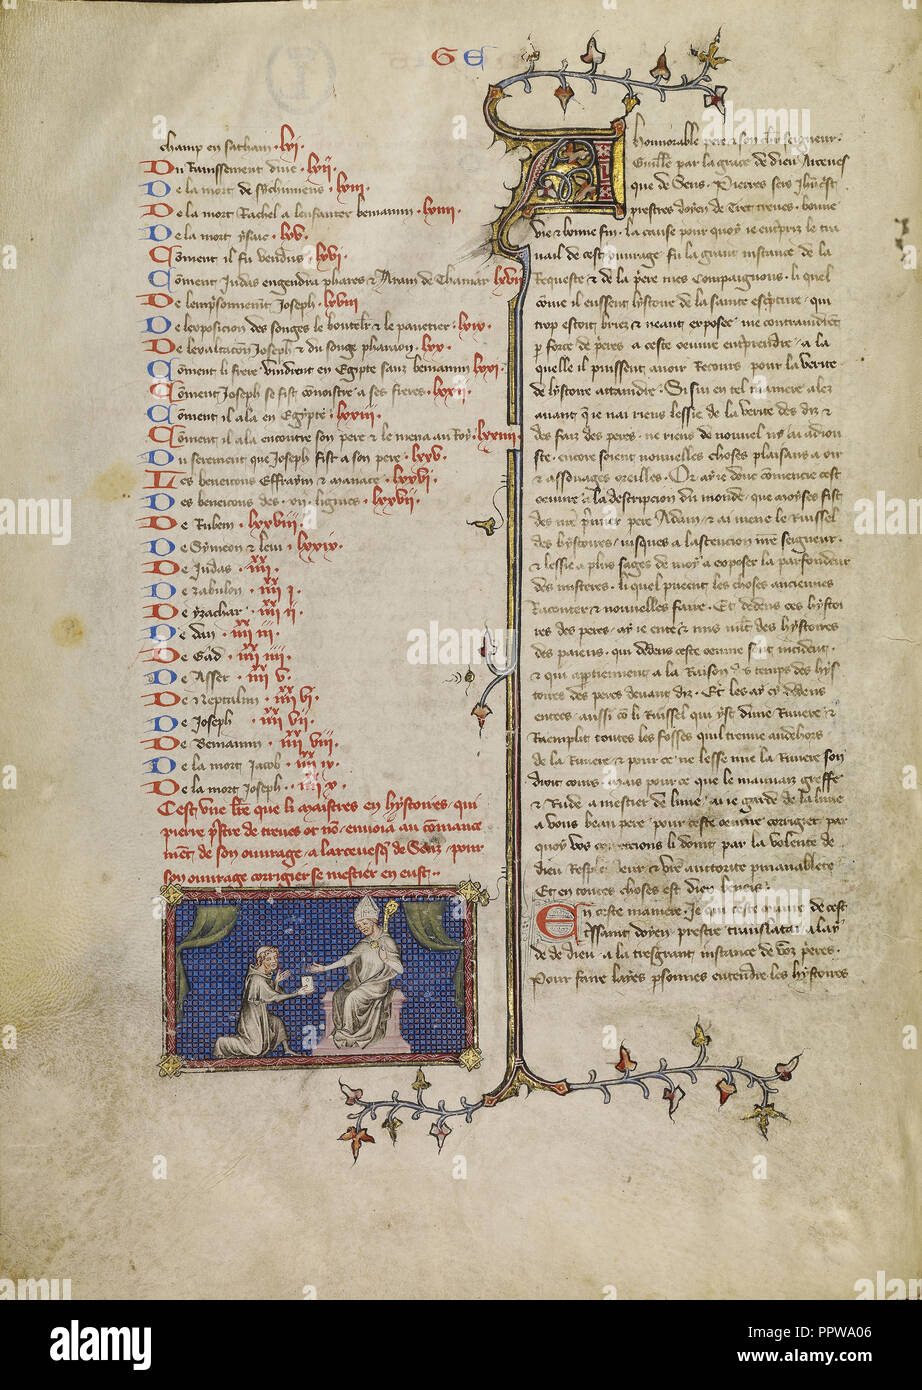 GE
champ en sathan · lxi ·
Du Ravissement dine · lxii ·
De la mort de sychimiens · lxiii ·
De la mort Rachel a lenfanter beniamin · lxiiii ·
De la mort ysaac · lxv ·
Coment il fu vendus · lxvi ·
Coment Judas engendra phares & Aram de Thamar · lxvii
De lemprisonement Joseph · lxviii
De lexposicion des songes le bouteler & le panetier · lxix ·
De lexaltacion Joseph & du songe pharaon · lxx ·
Coment li frere vindrent en Egipte sanz beniamin lxxi ·
Coment Joseph se fist conoistre a ses freres · lxxii
Coment il ala en Egypte · lxxiii ·
Coment il ala encontre son pere & le mena au Roy · lxxiiii ·
Du serement que Joseph fist a son pere · lxxv ·
Les beneicons Effraym & manace · lxxvi ·
Des beneicons des · xii · lignies · lxxvii ·
De Ruben · lxxviii ·
De Symeon & leui · lxxix ·
De Judas · iiii ·
De zabulon · iiii i ·
De yzachar · iiii ii ·
De dan · iiii iii ·
De Gad · iiii iiii ·
De Asser · iiii v ·
De Neptalim · iiii vi ·
De Joseph · iiii vii ·
De Beniamin · iiii viii ·
De la mort Jacob · iiii ix ·
De la mort Joseph · iiii x ·
Cest une lre que li maistres en hystoires, qui
pierre prestre de treves ot non, envoia au comance
ment de son ouvrage, a larcevesq de Sens, pour
son ouvrage corrigier se mestier en eust ··
A honnorable pere & son chr seigneur ·
Guille par la grace de dieu Arceves
que de Sens · Pierres sers ihucrist
prestres doyen de Tret treves · bonne
vie & bonne fin · la cause pour quoy ie empriz le tra
vail de cest ouvrage fu la grant instance de la
Requeste & de la pere mes Compaignons · li quel
come il eussent lystoire de la sainte escpture · qui
trop estoit briez & neant exposee me contraindret
p force de peres a ceste oevure emprendre · a la
quelle il puissent avoir Recours pour la verite
de lystoire attaindre · Si sui en tel maniere alez
avant que ie nai riens lessie de la verite des diz &
des faiz des peres · ne riens de nouvel ny ai adiou
ste · encore soient nouvelles choses plaisans a oir
& assouages oreilles · Or ay ie donc comencie cest
oevure a la descripcion du monde · que moyses fist
des nre primier pere Adam · & ai mene le Ruissel
des hystoires · iusques a lascencion nre seigneur ·
& lessie a plus sages de moy a exposer la parfondeur
des misteres · li quel pueent les choses anciennes
Raconter & nouvelles faire · Et dedens ces hystoi
res des peres · ay ie ente & mis nult des hystoires
des paiens · qui dedens ceste oevure sont incident ·
& qui aptiennent a la Raison & temps des hys
toires des peres devant diz · Et les ay cy dedens
entees · aussi co li Ruissel qui yst dune Riviere &
Raemplit toutes les fosses quil treuve audehors
de la Riviere & pour ce ne lesse mie la Riviere son
droit cours · Mais pour ce que le mauvaiz greffe
& Rude a mestier de lime · ai ie garde de la lime
a vous beau pere pour ceste oevure corrigier par
quoy vos correccions li doint par la volente de
dieu Resplendeur & vre auctorite pmanablete ·
Et en toutes choses est dieu beneis ·
En ceste maniere · Je qui ceste oevure de cest
Tressaint doyen prestre translatai a lay
de de dieu · a la tresgrant instance de voz peres ·
Pour faire layes psonnes entendre les hystoires
alamy
Image ID: PPWA06
www.alamy.com